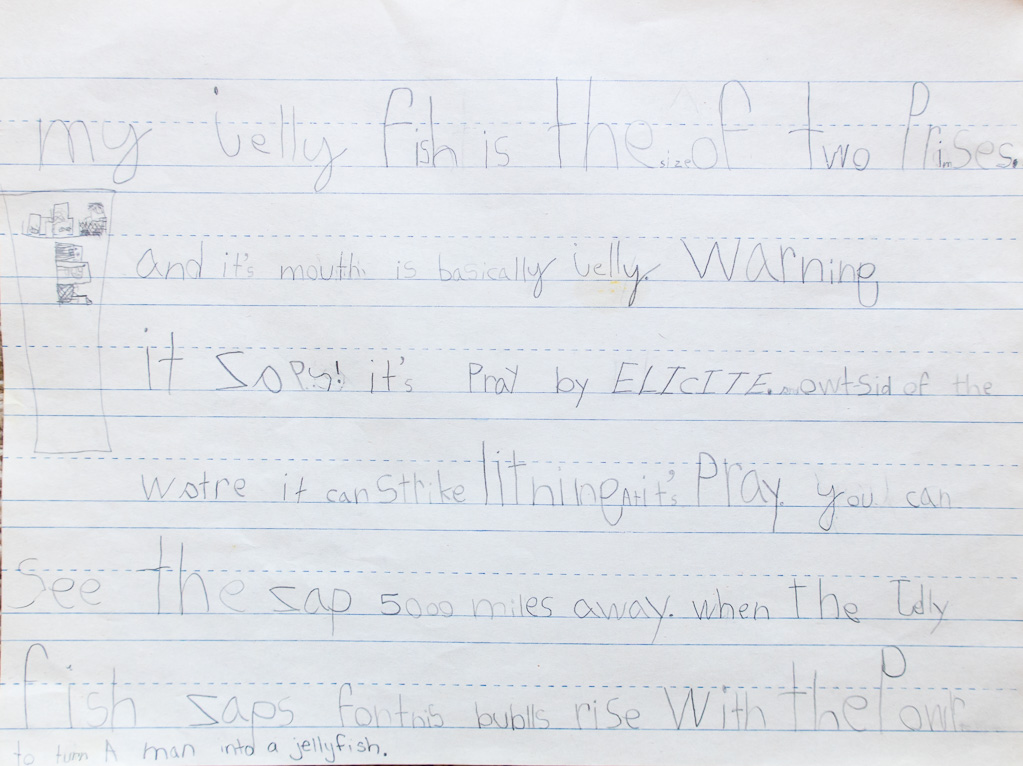 my jelly fish is the size of two Prisims.
and it's mouth is basically jelly. Warning
it ZaPs! it's Pray by ELICITE. owtsid of the
wotre it can Strike litning At it's Pray. you can
See the zap 5000 miles away. when the Jelly
fish zaps fontnis bublls rise With the Powr
to turn A man into a jellyfish.